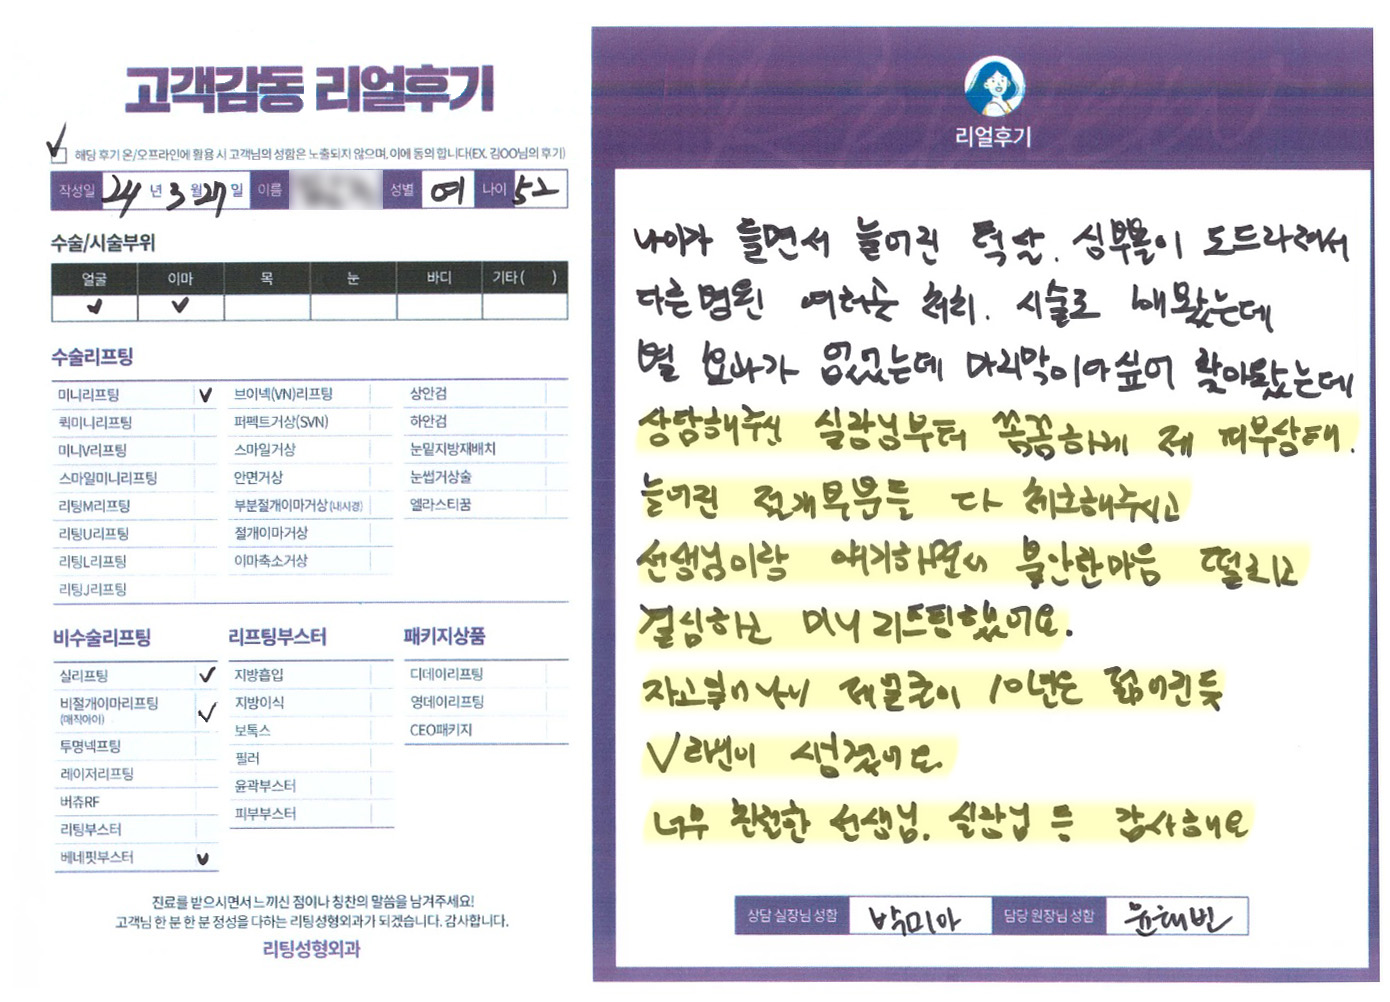 고객감동 리얼후기
해당 후기 온/오프라인에 활용 시 고객님의 성함은 노출되지 않으며, 이에 동의 합니다(EX. 김OO님의 후기)
작성일 24년 3월 27일 이름 성별 여 나이 52
수술/시술부위
얼굴 이마 목 눈 바디 기타( )
수술리프팅
미니리프팅 브이넥(VN)리프팅 상안검
퀵미니리프팅 퍼펙트거상(SVN) 하안검
미니V리프팅 스마일거상 눈밑지방재배치
스마일미니리프팅 안면거상 눈썹거상술
리팅M리프팅 부분절개이마거상(내시경) 엘라스티꿈
리팅U리프팅 절개이마거상
리팅L리프팅 이마축소거상
리팅J리프팅
비수술리프팅 리프팅부스터 패키지상품
실리프팅 지방흡입 디데이리프팅
비절개이마리프팅 지방이식 영데이리프팅
(매직아이)
보톡스 CEO패키지
투명넥프팅 필러
레이저리프팅 윤곽부스터
버츄RF 피부부스터
리팅부스터
베네핏부스터
진료를 받으시면서 느끼신 점이나 칭찬의 말씀을 남겨주세요!
고객님 한 분 한 분 정성을 다하는 리팅성형외과가 되겠습니다. 감사합니다.
리팅성형외과
리얼후기
나이가 들면서 늘어진 턱살. 심부볼이 도드라져서
다른병원 여러곳 처치. 시술로 해봤는데
별 효과가 없었는데 마지막이다싶어 찾아왔는데
상담해주신 실장님부터 꼼꼼하게 제 피부상태.
늘어진 절개부분등 다 체크해주시고
선생님이랑 얘기하면서 불안한마음 떨치고
결심하고 미니리프팅했어요.
자고일어나니 제얼굴이 10년은 젊어진듯
V라인이 생겼어요.
너무 친절한 선생님. 실장님 등 감사해요
상담 실장님 성함 박미아 담당 원장님 성함 윤태빈